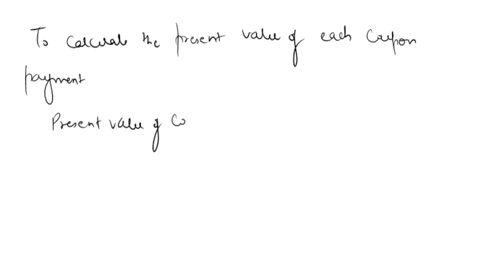 To calculate the present value of each coupon
payment
Present value of Co